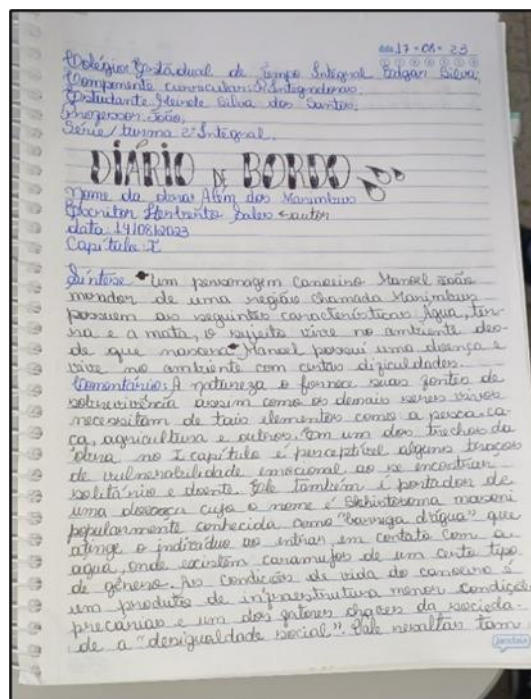 17-08-23
Colégio Estadual de Tempo Integral Edgar Silva,
Componente curricular: Integradoras.
Estudante Gleicele Silva dos Santos.
Professor: João,
Série/turma 2ª Integral.
DIÁRIO DE BORDO
Nome da obra: Além dos Marimbus
Escritor Herberto Sales ← autor
data: 14/08/2023
Capítulo: I
Síntese um personagem canoeiro Manoel João
morador de uma região chamada Marimbus
possuem as seguintes características: Água, ter-
ra e a mata, o sujeito vive no ambiente des-
de que nascera Manoel possui uma doença e
vive no ambiente com certas dificuldades.
Comentário: A natureza o fornece suas fontes de
sobrevivência assim como os demais seres vivos
necessitam de tais elementos como a pesca, ca-
ça, agricultura e outros. Em um dos trechos da
obra no I capítulo é perceptível alguns traços
de vulnerabilidade emocional ao se encontrar
solitário e doente. Ele também é portador de
uma doença cujo o nome é Schistosoma mansoni
popularmente conhecida como "barriga d'água" que
atinge o indivíduo ao entrar em contato com a
água, onde existem caramujos de um certo tipo
de gênero. As condições de vida do canoeiro é
um produto de infraestrutura menor condiçoẽ
precárias e um dos fatores chaves da socieda-
de a "desigualdade social". Vale ressaltar tam
jandaia